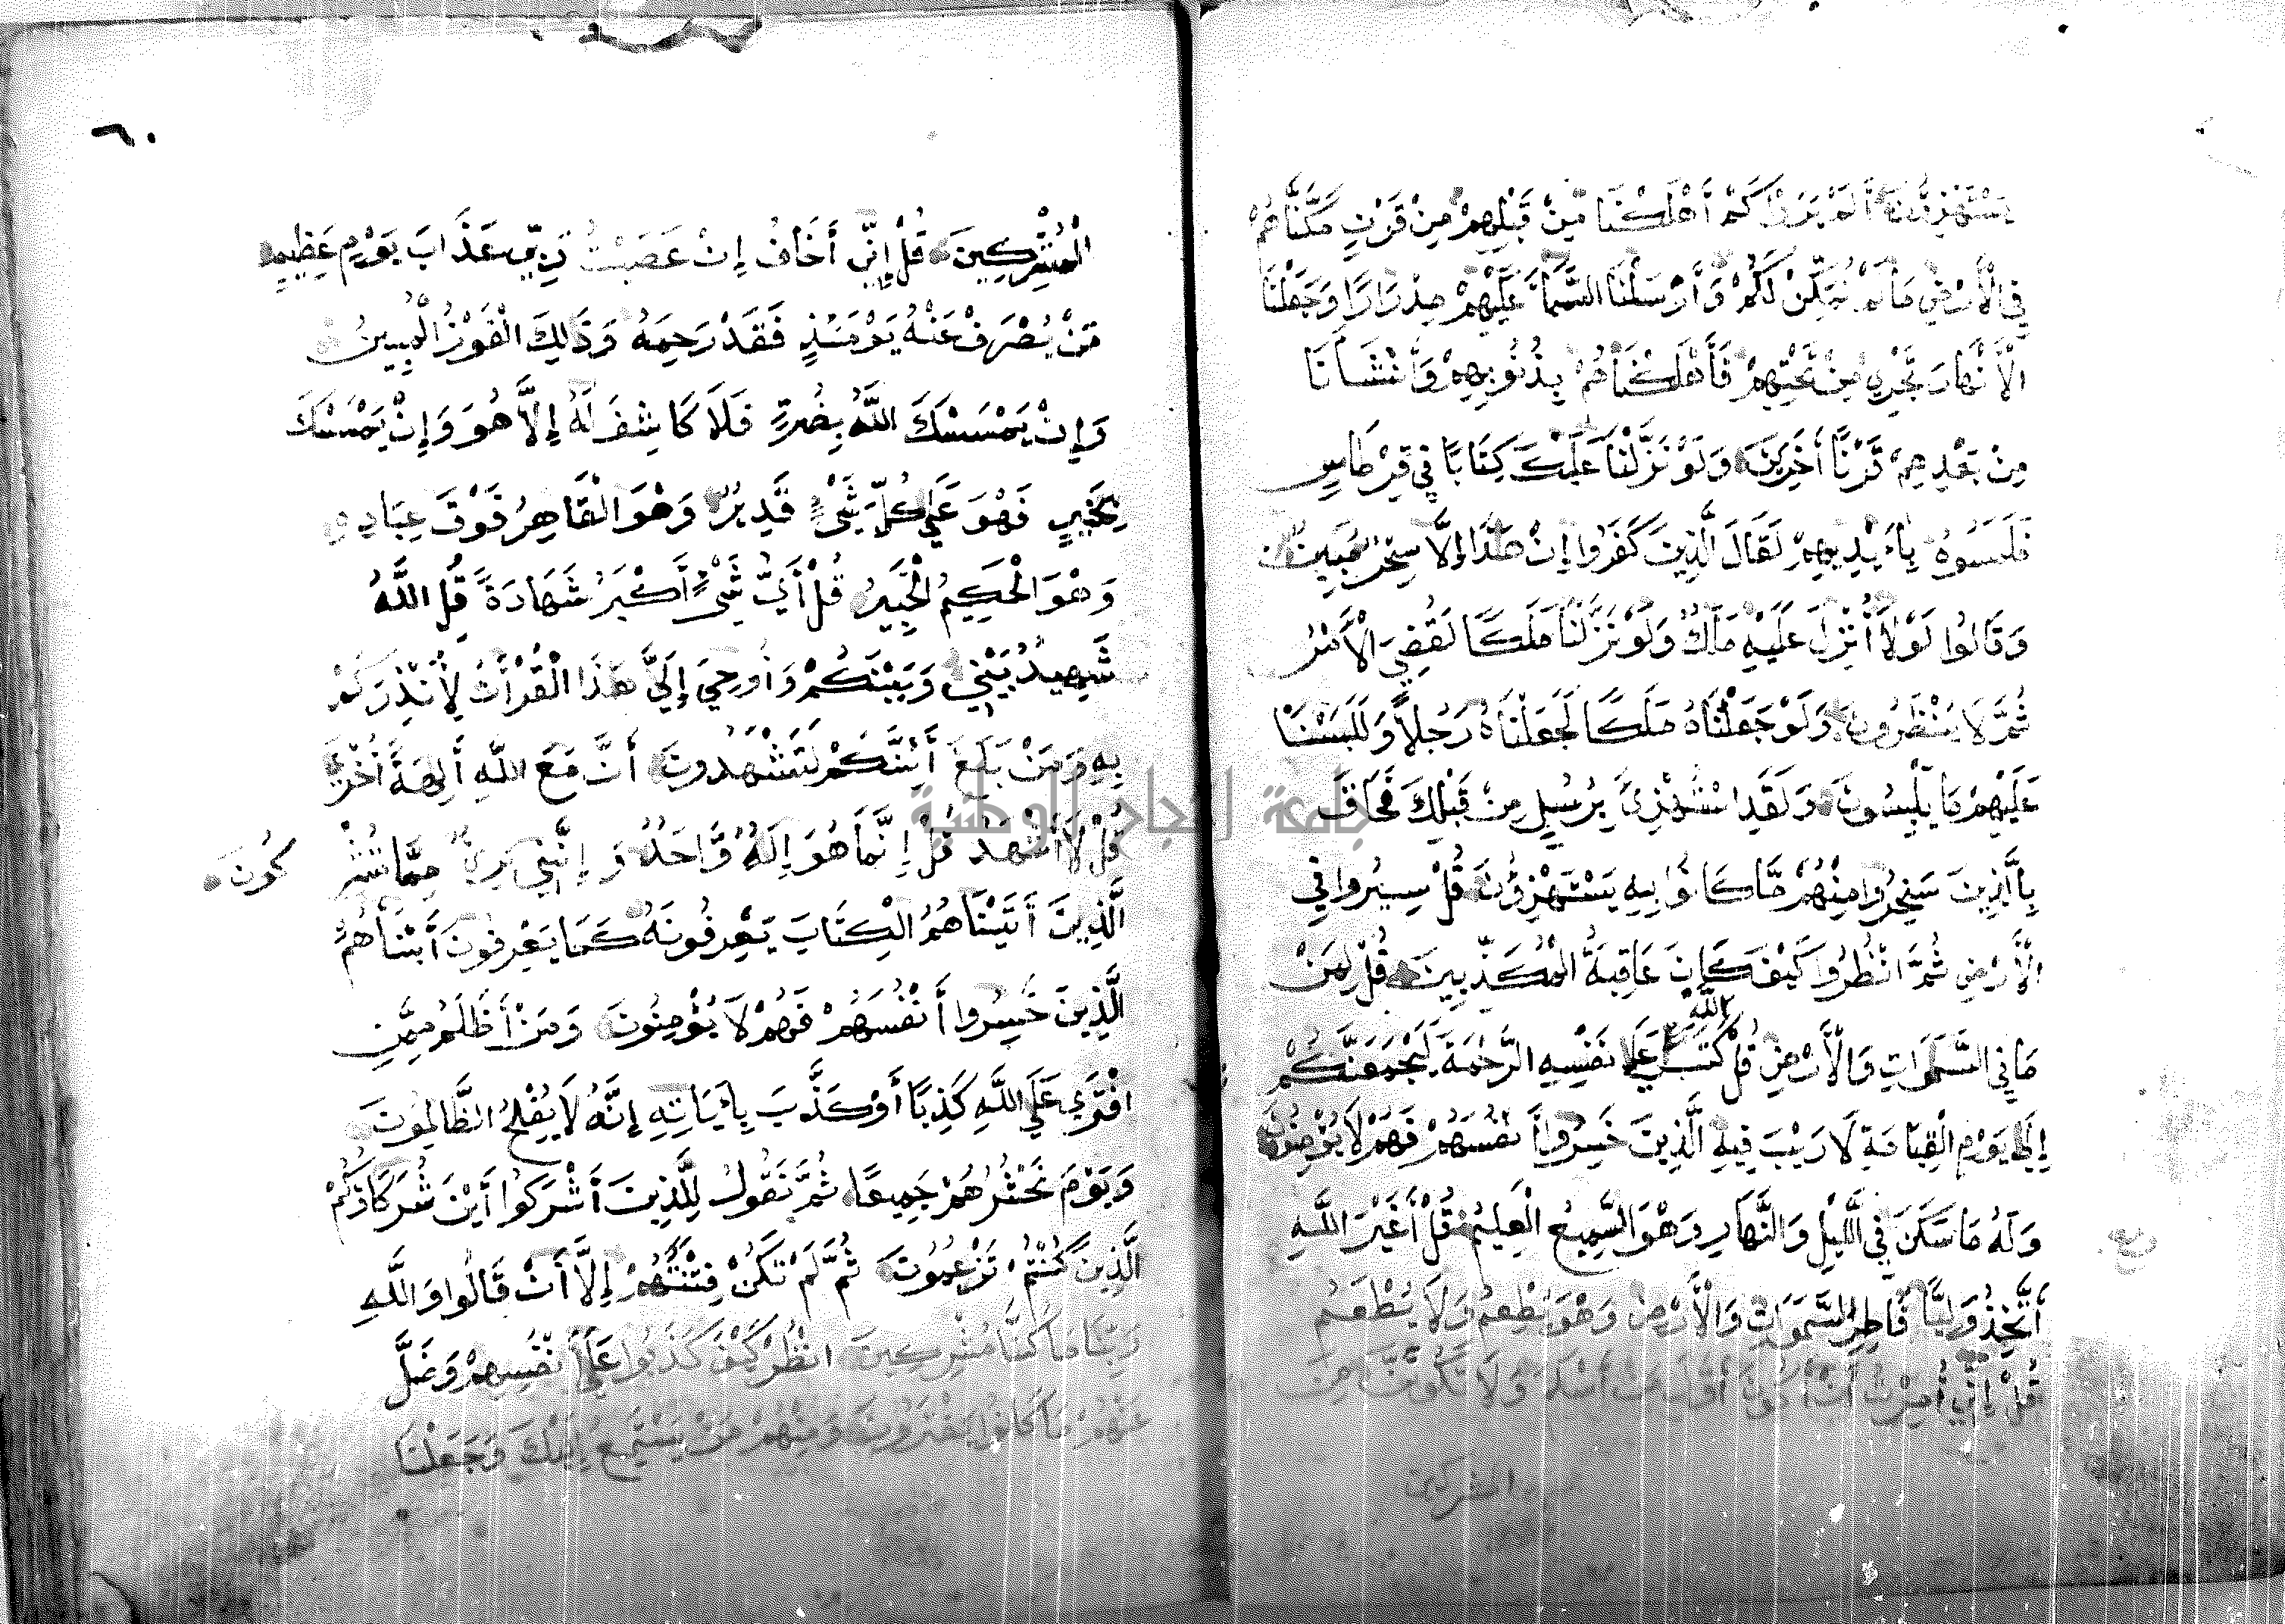 يَسْتَهْزِؤُنَ أَلَمْ يَرَوْا كَمْ أَهْلَكْنَا مِنْ قَبْلِهِمْ مِنْ قَرْنٍ مَكَّنَّاهُمْ
فِي الْأَرْضِ مَا لَمْ نُمَكِّنْ لَكُمْ وَأَرْسَلْنَا السَّمَاءَ عَلَيْهِمْ مِدْرَارًا وَجَعَلْنَا
الْأَنْهَارَ تَجْرِي مِنْ تَحْتِهِمْ فَأَهْلَكْنَاهُمْ بِذُنُوبِهِمْ وَأَنْشَأْنَا
مِنْ بَعْدِهِمْ قَرْنًا أَخَرِينَ وَلَوْ نَزَّلْنَا عَلَيْكَ كِتَابًا فِي قِرْطَاسٍ
فَلَمَسُوهُ بِأَيْدِيهِمْ لَقَالَ الَّذِينَ كَفَرُوا إِنْ هَذَا إِلَّا سِحْرٌ مُبِينٌ
وَقَالُوا لَوْلَا أُنْزِلَ عَلَيْهِ مَلَكٌ وَلَوْ نَزَّلْنَا مَلَكًا لَقُضِيَ الْأَمْرُ
ثُمَّ لَا يُنْظَرُونَ وَلَوْ جَعَلْنَاهُ مَلَكًا لَجَعَلْنَاهُ رَجُلًا وَلَلَبَسْنَا
عَلَيْهِمْ مَا يَلْبِسُونَ وَلَقَدِ اسْتُهْزِئَ بِرُسُلٍ مِنْ قَبْلِكَ فَحَاقَ
بِالَّذِينَ سَخِرُوا مِنْهُمْ مَا كَانُوا بِهِ يَسْتَهْزِؤُنَ قُلْ سِيرُوا فِي
الْأَرْضِ ثُمَّ انْظُرُوا كَيْفَ كَانَ عَاقِبَةُ الْمُكَذِّبِينَ قُلْ لِمَنْ
مَا فِي السَّمَوَاتِ وَالْأَرْضِ قُلْ لِلَّهِ كَتَبَ عَلَى نَفْسِهِ الرَّحْمَةَ لَيَجْمَعَنَّكُمْ
إِلَى يَوْمِ الْقِيَامَةِ لَا رَيْبَ فِيهِ الَّذِينَ خَسِرُوا أَنْفُسَهُمْ فَهُمْ لَا يُؤْمِنُونَ
وَلَهُ مَا سَكَنَ فِي اللَّيْلِ وَالنَّهَارِ وَهْوَ السَّمِيعُ الْعَلِيمُ قُلْ أَغَيْرَ اللَّهِ
أَتَّخِذُ وَلِيًّا فَاطِرِ السَّمَوَاتِ وَالْأَرْضِ وَهْوَ يُطْعِمُ وَلَا يُطْعَمُ
قُلْ إِنِّي أُمِرْتُ أَنْ أَكُونَ أَوَّلَ مَنْ أَسْلَمَ وَلَا تَكُونَنَّ مِنَ
المشركين
٦٠
الْمُشْرِكِينَ قُلْ إِنِّي أَخَافُ إِنْ عَصَيْتُ رَبِّي عَذَابَ يَوْمٍ عَظِيمٍ
مَنْ يُصْرَفْ عَنْهُ يَوْمَئِذٍ فَقَدْ رَحِمَهُ وَذَلِكَ الْفَوْزُ الْمُبِينُ
وَإِنْ يَمْسَسْكَ اللَّهُ بِضُرٍّ فَلَا كَاشِفَ لَهُ إِلَّا هُوَ وَإِنْ يَمْسَسْكَ
بِخَيْرٍ فَهْوَ عَلَى كُلِّ شَيْءٍ قَدِيرٌ وَهْوَ الْقَاهِرُ فَوْقَ عِبَادِهِ
وَهْوَ الْحَكِيمُ الْخَبِيرُ قُلْ أَيُّ شَيْءٍ أَكْبَرُ شَهَادَةً قُلِ اللَّهُ
شَهِيدٌ بَيْنِي وَبَيْنَكُمْ وَأُوحِيَ إِلَيَّ هَذَا الْقُرْأَنُ لِأُنْذِرَكُمْ
بِهِ وَمَنْ بَلَغَ أَئِنَّكُمْ لَتَشْهَدُونَ أَنَّ مَعَ اللَّهِ أَلِهَةً أُخْرَى
قُلْ لَا أَشْهَدُ قُلْ إِنَّمَا هُوَ إِلَهٌ وَاحِدٌ وَإِنَّنِي بَرِيءٌ مِمَّا تُشْرِكُونَ
الَّذِينَ أَتَيْنَاهُمُ الْكِتَابَ يَعْرِفُونَهُ كَمَا يَعْرِفُونَ أَبْنَاءَهُمُ
الَّذِينَ خَسِرُوا أَنْفُسَهُمْ فَهُمْ لَا يُؤْمِنُونَ وَمَنْ أَظْلَمُ مِمَّنِ
افْتَرَى عَلَى اللَّهِ كَذِبًا أَوْ كَذَّبَ بِأَيَاتِهِ إِنَّهُ لَا يُفْلِحُ الظَّالِمُونَ
وَيَوْمَ نَحْشُرُهُمْ جَمِيعًا ثُمَّ نَقُولُ لِلَّذِينَ أَشْرَكُوا أَيْنَ شُرَكَاؤُكُمُ
الَّذِينَ كُنْتُمْ تَزْعُمُونَ ثُمَّ لَمْ تَكُنْ فِتْنَتُهُمْ إِلَّا أَنْ قَالُوا وَاللَّهِ
رَبِّنَا مَا كُنَّا مُشْرِكِينَ انْظُرْ كَيْفَ كَذَبُوا عَلَى أَنْفُسِهِمْ وَضَلَّ
عَنْهُمْ مَا كَانُوا يَفْتَرُونَ وَمِنْهُمْ مَنْ يَسْتَمِعُ إِلَيْكَ وَجَعَلْنَا
جامعة النجاح الوطنية